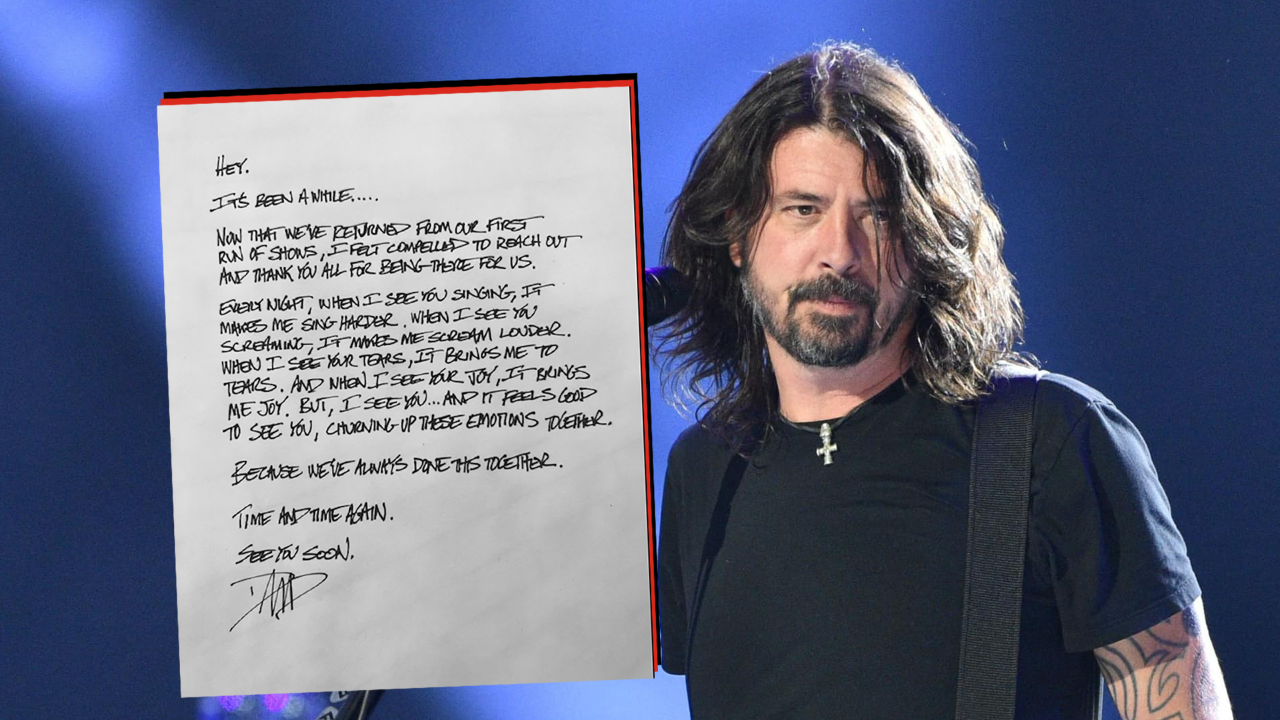 HEY.
IT'S BEEN A WHILE.....
NOW THAT WE'VE RETURNED FROM OUR FIRST
RUN OF SHOWS, I FELT COMPELLED TO REACH OUT
AND THANK YOU ALL FOR BEING THERE FOR US.
EVERY NIGHT, WHEN I SEE YOU SINGING, IT
MAKES ME SING HARDER. WHEN I SEE YOU
SCREAMING, IT MAKES ME SCREAM LOUDER.
WHEN I SEE YOUR TEARS, IT BRINGS ME TO
TEARS. AND WHEN I SEE YOUR JOY, IT BRINGS
ME JOY. BUT, I SEE YOU...AND IT FEELS GOOD
TO SEE YOU, CHURNING UP THESE EMOTIONS TOGETHER.
BECAUSE WE'VE ALWAYS DONE THIS TOGETHER.
TIME AND TIME AGAIN.
SEE YOU SOON.